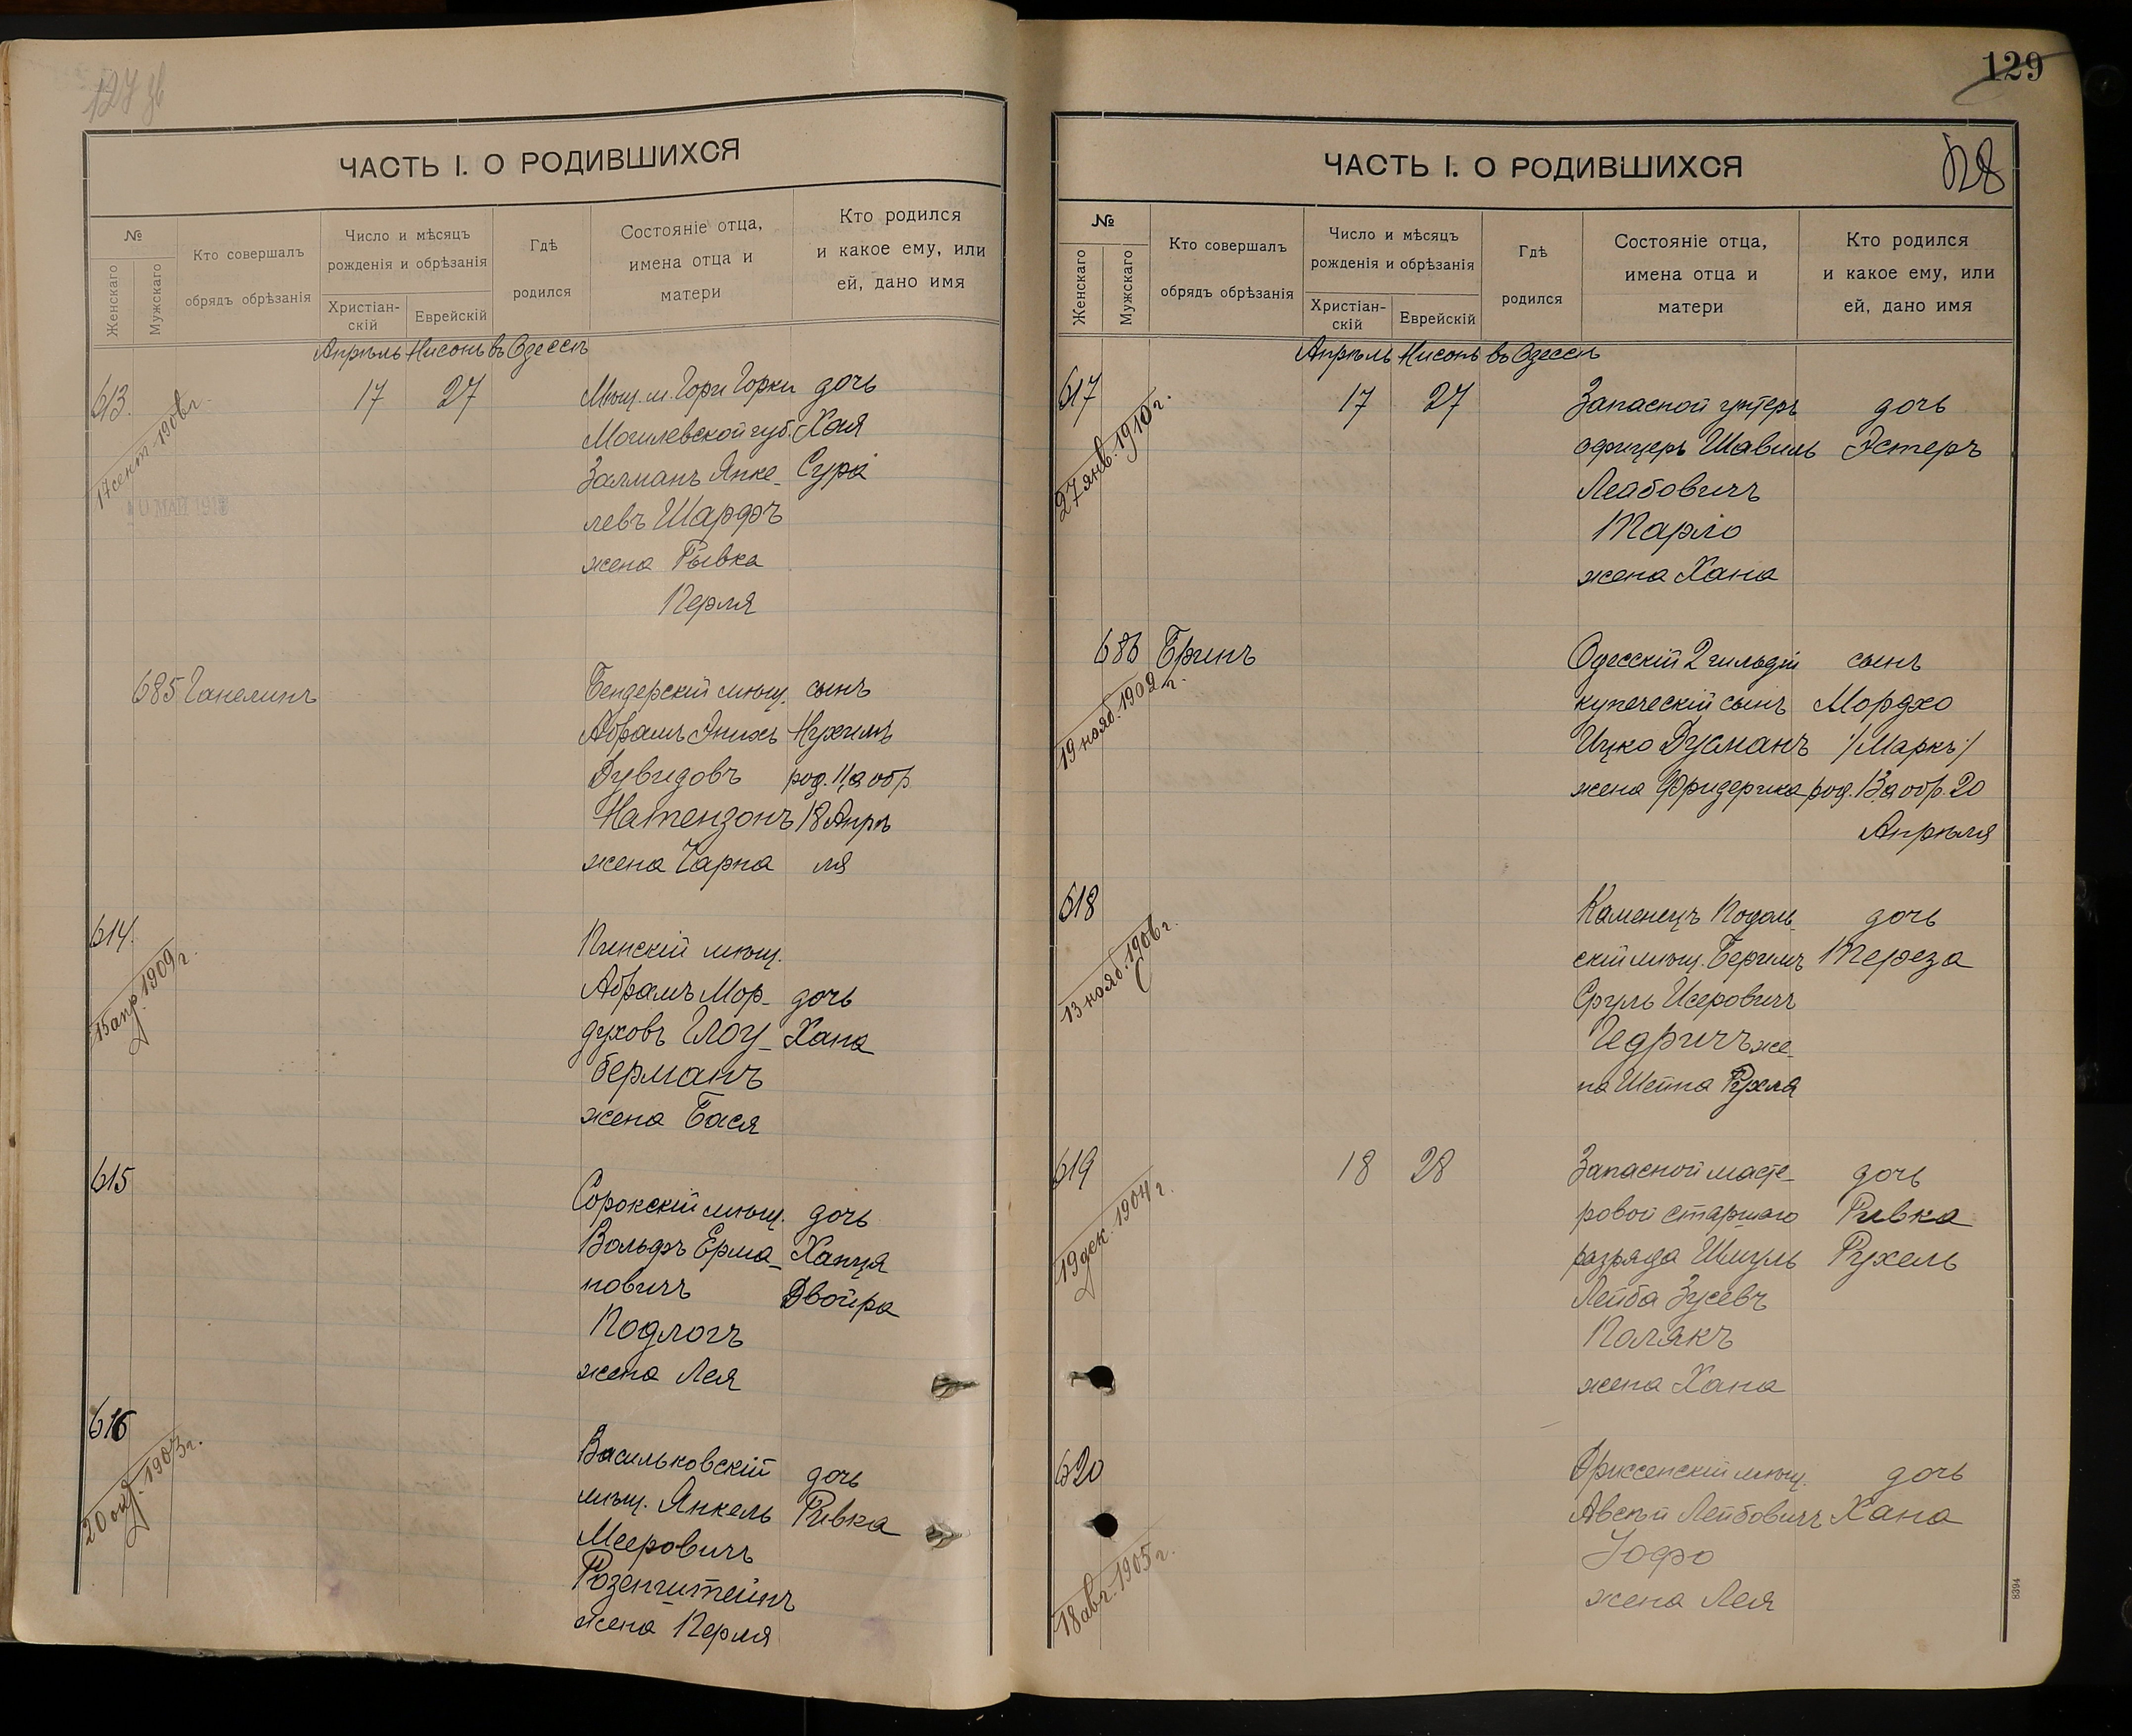 127 об
ЧАСТЬ I. О РОДИВШИХСЯ
№
Женскаго
Мужскаго
Кто совершалъ
обрядъ обрѣзанія
Число и мѣсяцъ
рожденія и обрѣзанія
Христіан-
скій
Еврейскій
Гдѣ
родился
Состояніе отца,
имена отца и
матери
Кто родился
и какое ему, или
ей, дано имя
Апрѣль Нисонъ въ Одессѣ
613. 17 27 Мѣщ. м. Гори Горки дочь
17 сент. 1906 г.
Могилевской губ. Хая
Залманъ Янке- Сура
левъ Шарфъ
жена Рывка
Перля
МАЙ 191
685 Ганелинъ Бендерскій мѣщ. сынъ
Абрамъ Энихъ Нухимъ
Дувидовъ род. 11, а обр.
Натензонъ 18 Апрѣ
жена Чарна ля
614. Пинскій мѣщ.
15 апр. 1909 г.
Абрамъ Мор- дочь
духовъ Глоу- Хана
берманъ
жена Бася
615 Сорокскій мѣщ. дочь
Вольфъ Ерма- Ханця
новичъ Двойра
Подлогъ
жена Лея
616 Васильковскій дочь
20 окт. 1903 г.
мѣщ. Янкель Ривка
Мееровичъ
Розенштейнъ
жена Перля
129
128
ЧАСТЬ I. О РОДИВШИХСЯ
№
Женскаго
Мужскаго
Кто совершалъ
обрядъ обрѣзанія
Число и мѣсяцъ
рожденія и обрѣзанія
Христіан-
скій
Еврейскій
Гдѣ
родился
Состояніе отца,
имена отца и
матери
Кто родился
и какое ему, или
ей, дано имя
Апрѣль Нисонъ въ Одессѣ
617 17 27 Запасной унтеръ дочь
27 янв. 1910 г.
офицеръ Шавиль Эстеръ
Лейбовичъ
Тарло
жена Хана
686 Бринъ Одесскій 2 гильдіи сынъ
19 нояб. 1902 г.
купеческій сынъ Мордхо
Ицко Дусманъ /Маркъ/
жена Фридерика род. 13, а обр. 20
Апрѣля
618 Каменецъ Подоль- дочь
13 нояб. 1906 г.
скій мѣщ. Берилъ Тереза
Сруль Исеровичъ
Гедричъ же-
на Шейна Рухля
619 18 28 Запасной масте- дочь
19 дек. 1904 г.
ровой старшаго Ривка
разряда Шмуль Рухель
Лейба Зусевъ
Полякъ
жена Хана
620 Дриссенскій мѣщ. дочь
18 авг. 1905 г.
Авсѣй Лейбовичъ Хана
Іофо
жена Лея
8394